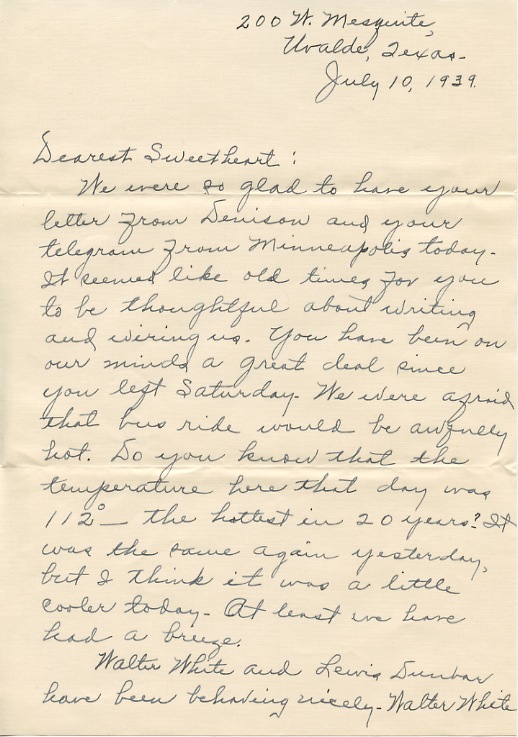 200 W. Mesquite,
Uvalde, Texas-
July 10, 1939.
Dearest Sweetheart:
We were so glad to have your
letter from Denison and your
telegram from Minneapolis today-
It seemed like old times for you
to be thoughtful about writing
and wiring us. You have been on
our minds a great deal since
you left Saturday- We were afraid
that bus ride would be awfully
hot. Do you know that the
temperature here that day was
112° — the hottest in 20 years? It
was the same again yesterday,
but I think it was a little
cooler today- At least we have
had a breeze.
Walter White and Lewis Dunbar
have been behaving nicely- Walter White